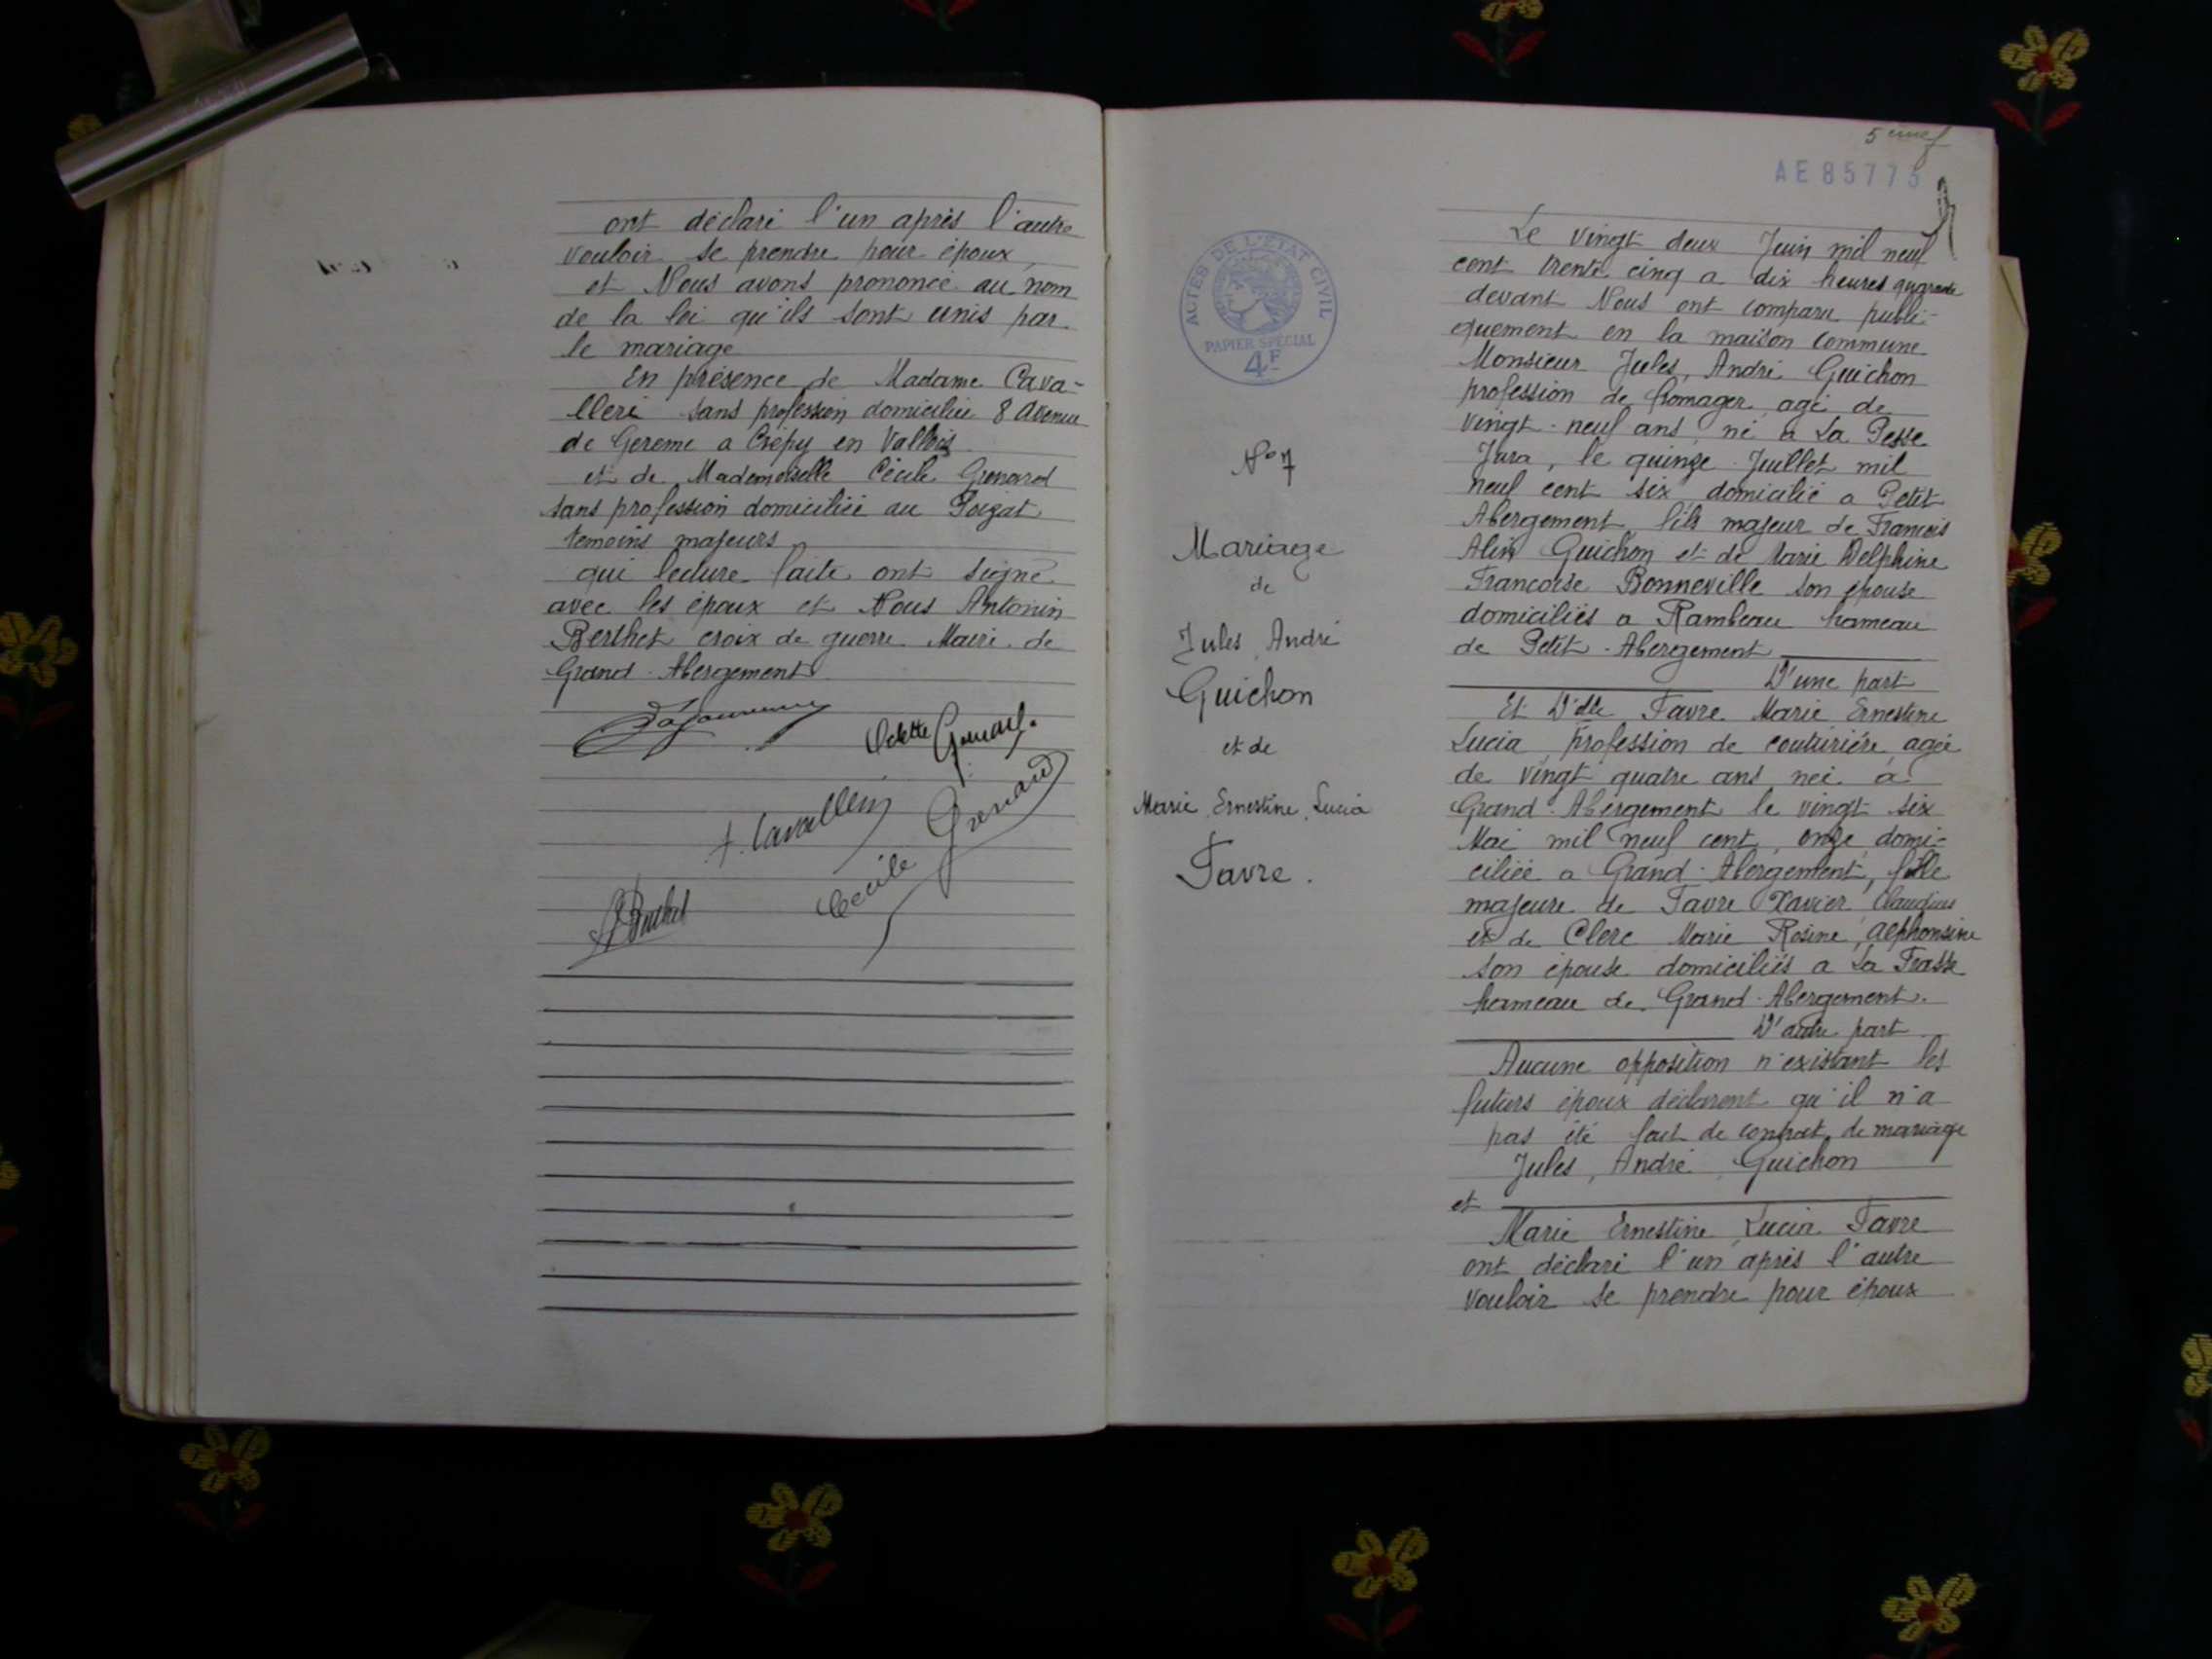 ont déclaré l'un après l'autre
vouloir se prendre pour époux,
et Nous avons prononcé au nom
de la loi qu'ils sont unis par
le mariage
En présence de Madame Cava-
lleri sans profession domiciliée 8 Avenue
de Gereme a Crépy en Vallois
et de Mademoiselle Cécile Grenard
sans profession domiciliée au Poizat
temoins majeurs
qui lecture faite ont signé
avec les époux et Nous Antonin
Berthet croix de guerre Maire de
Grand-Abergement
Odette Grenard.
Cavalleri
Cecile Grenard
Berthet
5eme f
AE 85775
ACTES DE L'ÉTAT CIVIL
PAPIER SPÉCIAL
4F
N°7
Mariage
de
Jules André
Guichon
et de
Marie, Ernestine, Lucia
Favre.
Le vingt deux Juin mil neuf
cent trente cinq a dix heures quarante
devant Nous ont comparu publi-
quement en la maison commune
Monsieur Jules, André Guichon
profession de fromager agé de
vingt-neuf ans, né à La Pesse
Jura, le quinze Juillet mil
neuf cent six domicilié a Petit
Abergement fils majeur de François
Alix Guichon et de Marie Delphine
Françoise Bonneville son épouse
domiciliés a Rambeau hameau
de Petit-Abergement
D'une part
Et D'lle Favre Marie Ernestine
Lucia profession de couturière agée
de vingt quatre ans neé à
Grand-Abergement le vingt six
Mai mil neuf cent onze domi-
ciliée a Grand-Abergement, fille
majeure de Favre Xavier Claudius
et de Clerc Marie Rosine, Alphonsine
son épouse domiciliés a La Frasse
hameau de Grand-Abergement.
D'autre part
Aucune opposition n'existant les
futurs époux déclarent qu'il n'a
pas été fait de contrat de mariage
Jules, André, Guichon
et
Marie Ernestine Lucia Favre
ont déclaré l'un après l'autre
vouloir se prendre pour époux